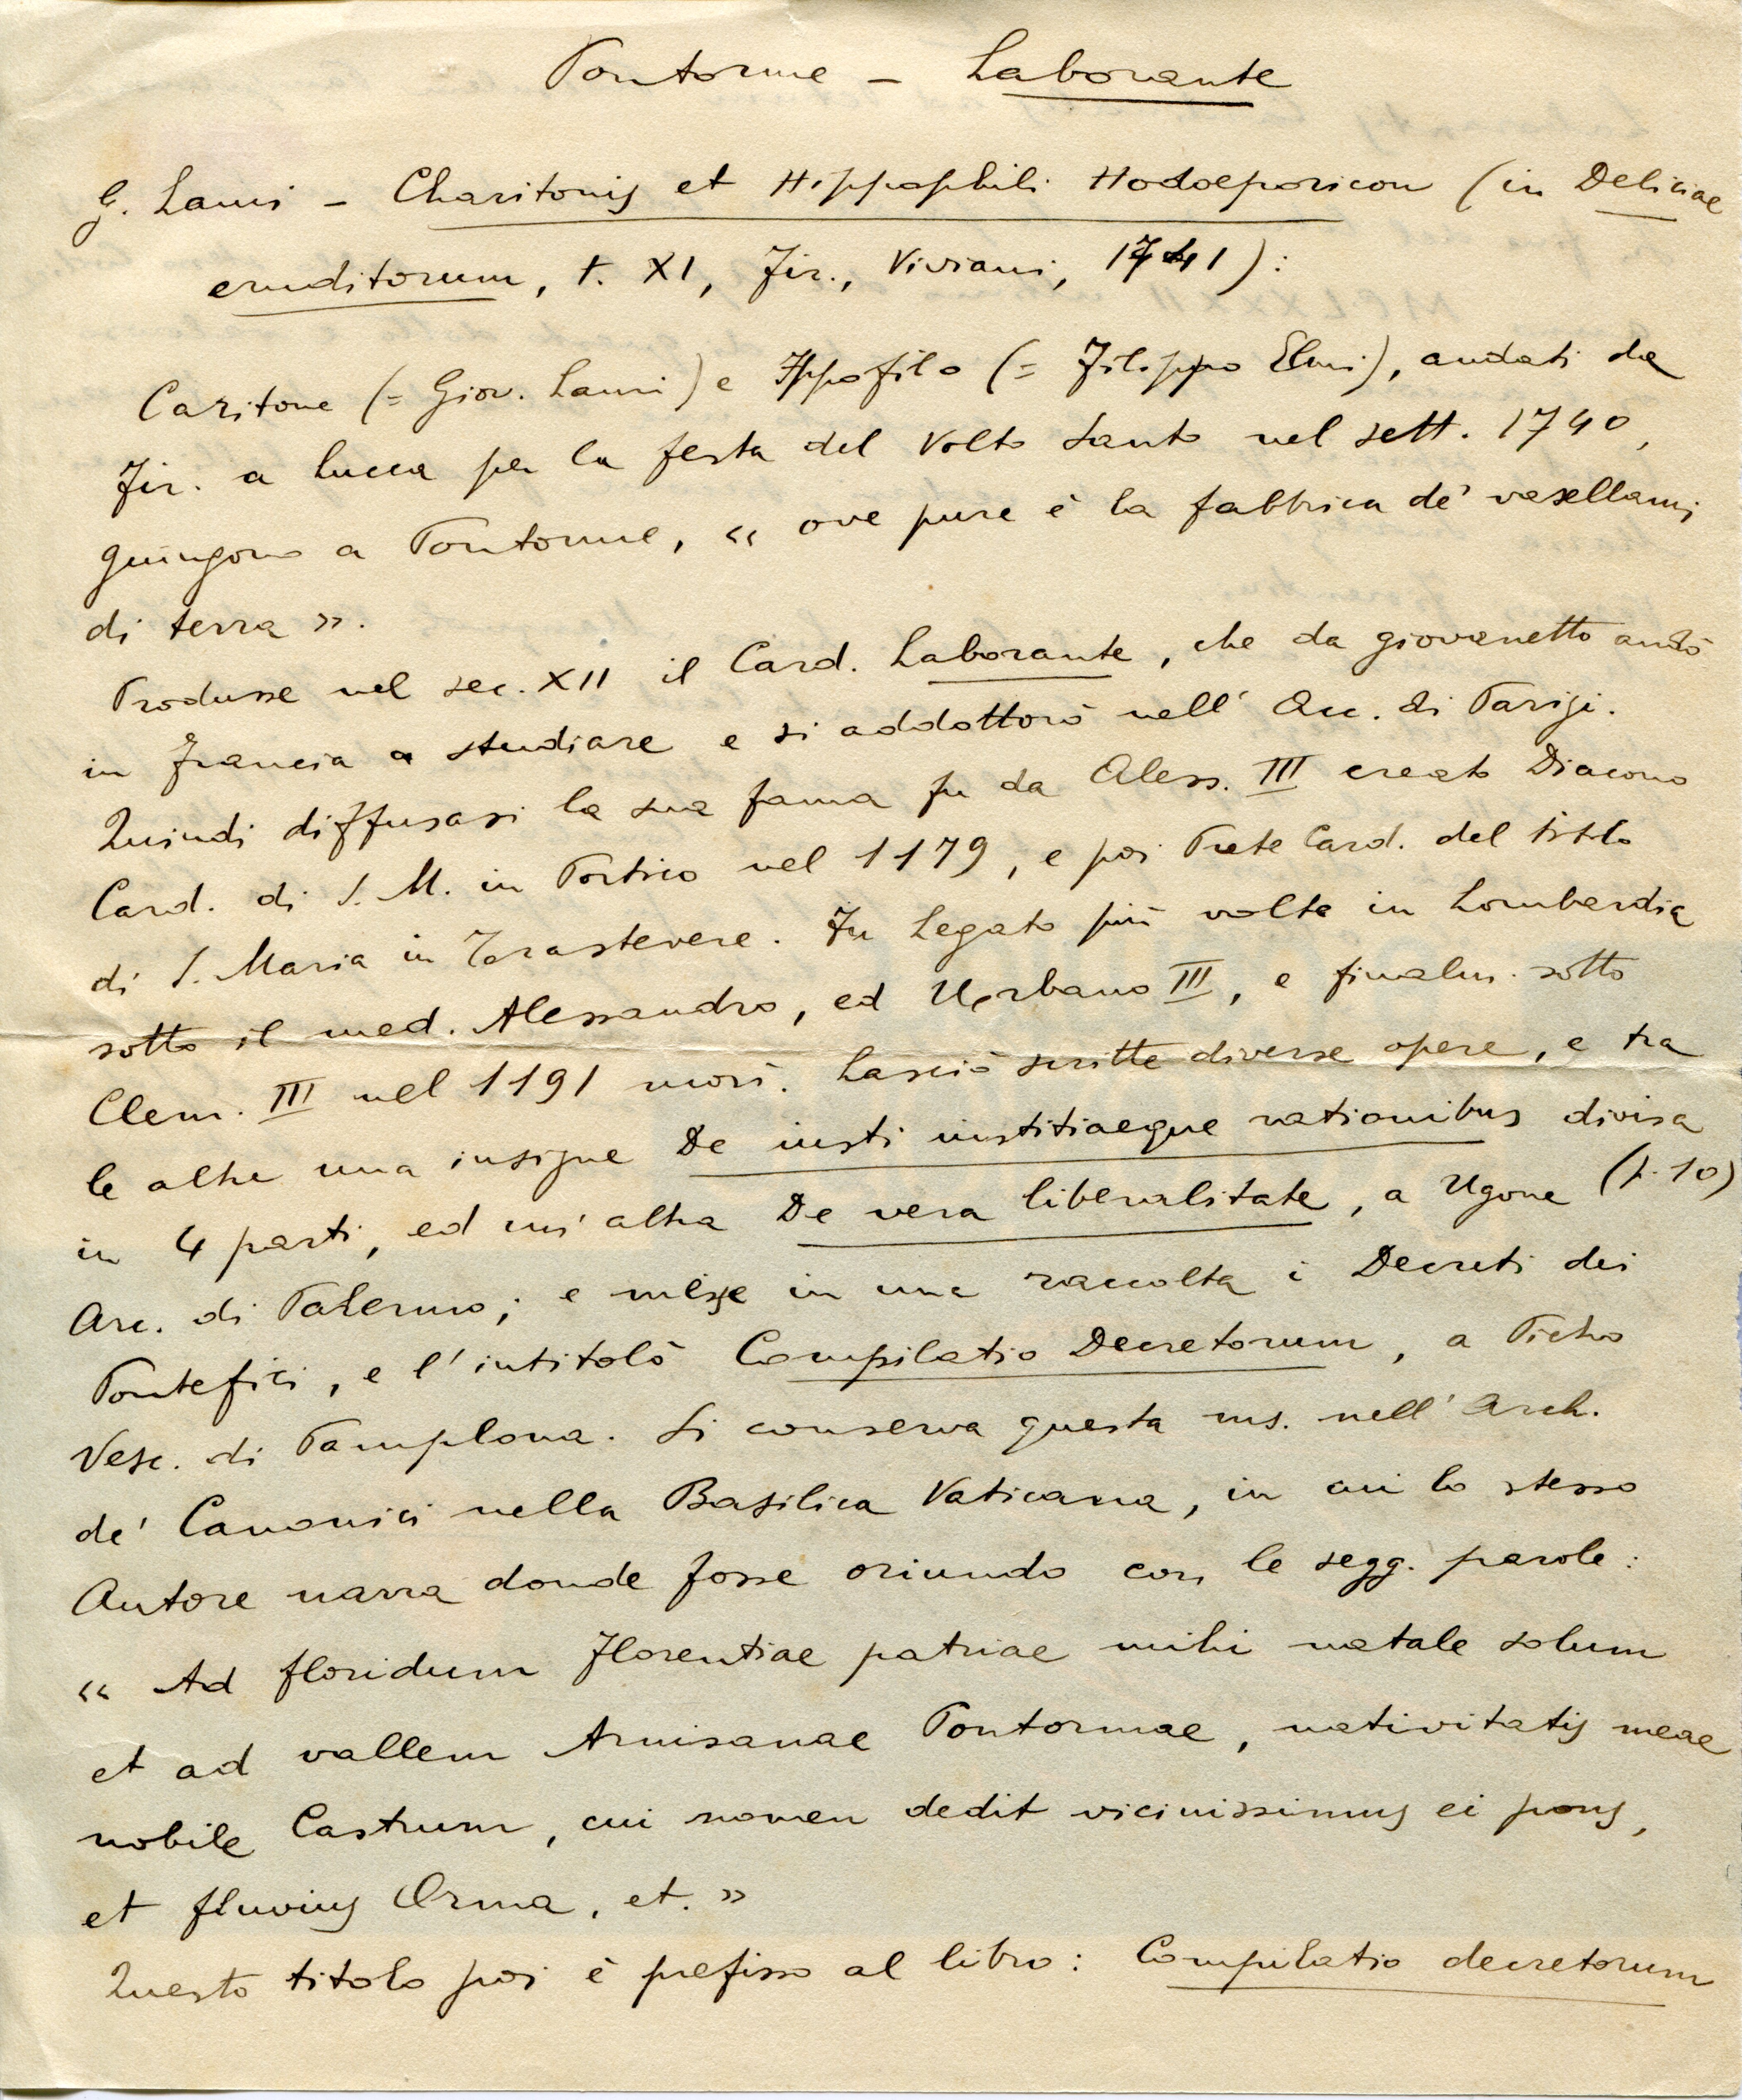 Pontorme – Laborante
G. Lami – Charitonis et Hippophili Hodoeporicon (in Deliciae
eruditorum, t. XI, Fir., Viviani, 1741):
Caritone (= Giov. Lami) e Ippofilo (= Filippo Elmi), andati da
Fir. a Lucca per la festa del Volto Santo nel sett. 1740,
giungono a Pontorme, « ove pure è la fabbrica de' vasellami
di terra ».
Produsse nel sec. XII il Card. Laborante, che da giovanetto andò
in Francia a studiare e si addottorò nell' Acc. di Parigi.
Quindi diffusasi la sua fama fu da Aless. III creato Diacono
Card. di S. M. in Portico nel 1179, e poi Prete Card. del titolo
di S. Maria in Trastevere. Fu Legato più volte in Lombardia
sotto il med. Alessandro, ed Urbano III, e finalm. sotto
Clem. III nel 1191 morì. Lasciò scritte diverse opere, e tra
le altre una insigne De iusti iustitiaeque rationibus divisa
in 4 parti, ed un' altra De vera liberalitate, a Ugone (p. 10)
Arc. di Palermo; e messe in una raccolta i Decreti dei
Pontefici, e l' intitolò Compilatio Decretorum, a Pietro
Vesc. di Pamplona. Si conserva questa ms. nell' Arch.
de' Canonici nella Basilica Vaticana, in cui lo stesso
Autore narra donde fosse oriundo con le segg. parole:
« Ad floridum Florentiae patriae mihi natale solum
et ad vallem Arnisanae Pontormae, nativitatis meae
nobile Castrum, cui nomen dedit vicinissimus ei pons,
et fluvius Orma, et. »
Questo titolo poi è prefisso al libro: Compilatio decretorum